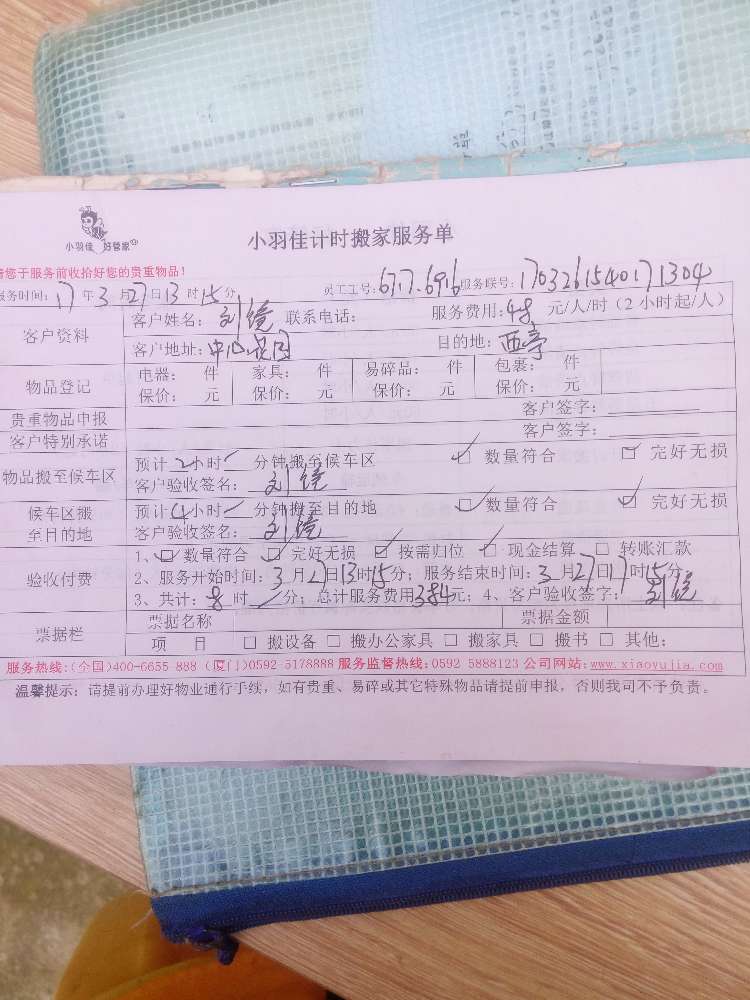 小羽佳 好管家
小羽佳计时搬家服务单
请您于服务前收拾好您的贵重物品!
服务时间: 17 年 3 月 27 日 13 时 15 分 员工工号: 6717.6916 服务联号: 1703261540171304
客户资料 客户姓名: 刘镜 联系电话: 服务费用: 48 元/人/时 (2 小时起/人)
客户地址: 中心花园 目的地: 西亭
物品登记 电器: 件 家具: 件 易碎品: 件 包裹: 件
保价: 元 保价: 元 保价: 元 保价: 元
贵重物品申报 客户签字:
客户特别承诺 客户签字:
物品搬至候车区 预计 2 小时 分钟搬至候车区 ☑ 数量符合 ☑ 完好无损
客户验收签名: 刘镜
候车区搬至目的地 预计 4 小时 分钟搬至目的地 ☑ 数量符合 ☑ 完好无损
客户验收签名: 刘镜
验收付费 1、☑ 数量符合 ☑ 完好无损 ☑ 按需归位 ☑ 现金结算 □ 转账汇款
2、服务开始时间: 3 月 27 日 13 时 15 分; 服务结束时间: 3 月 27 日 17 时 15 分
3、共计: 8 时 分; 总计服务费用 384 元; 4、客户验收签字: 刘镜
票据栏 票据名称 票据金额
项 目 □ 搬设备 □ 搬办公家具 □ 搬家具 □ 搬书 □ 其他:
服务热线:(全国)400-6655 888 (厦门)0592 5178888 服务监督热线: 0592 5888123 公司网站: www.xiaoyujia.com
温馨提示: 请提前办理好物业通行手续, 如有贵重、易碎或其它特殊物品请提前申报, 否则我司不予负责。